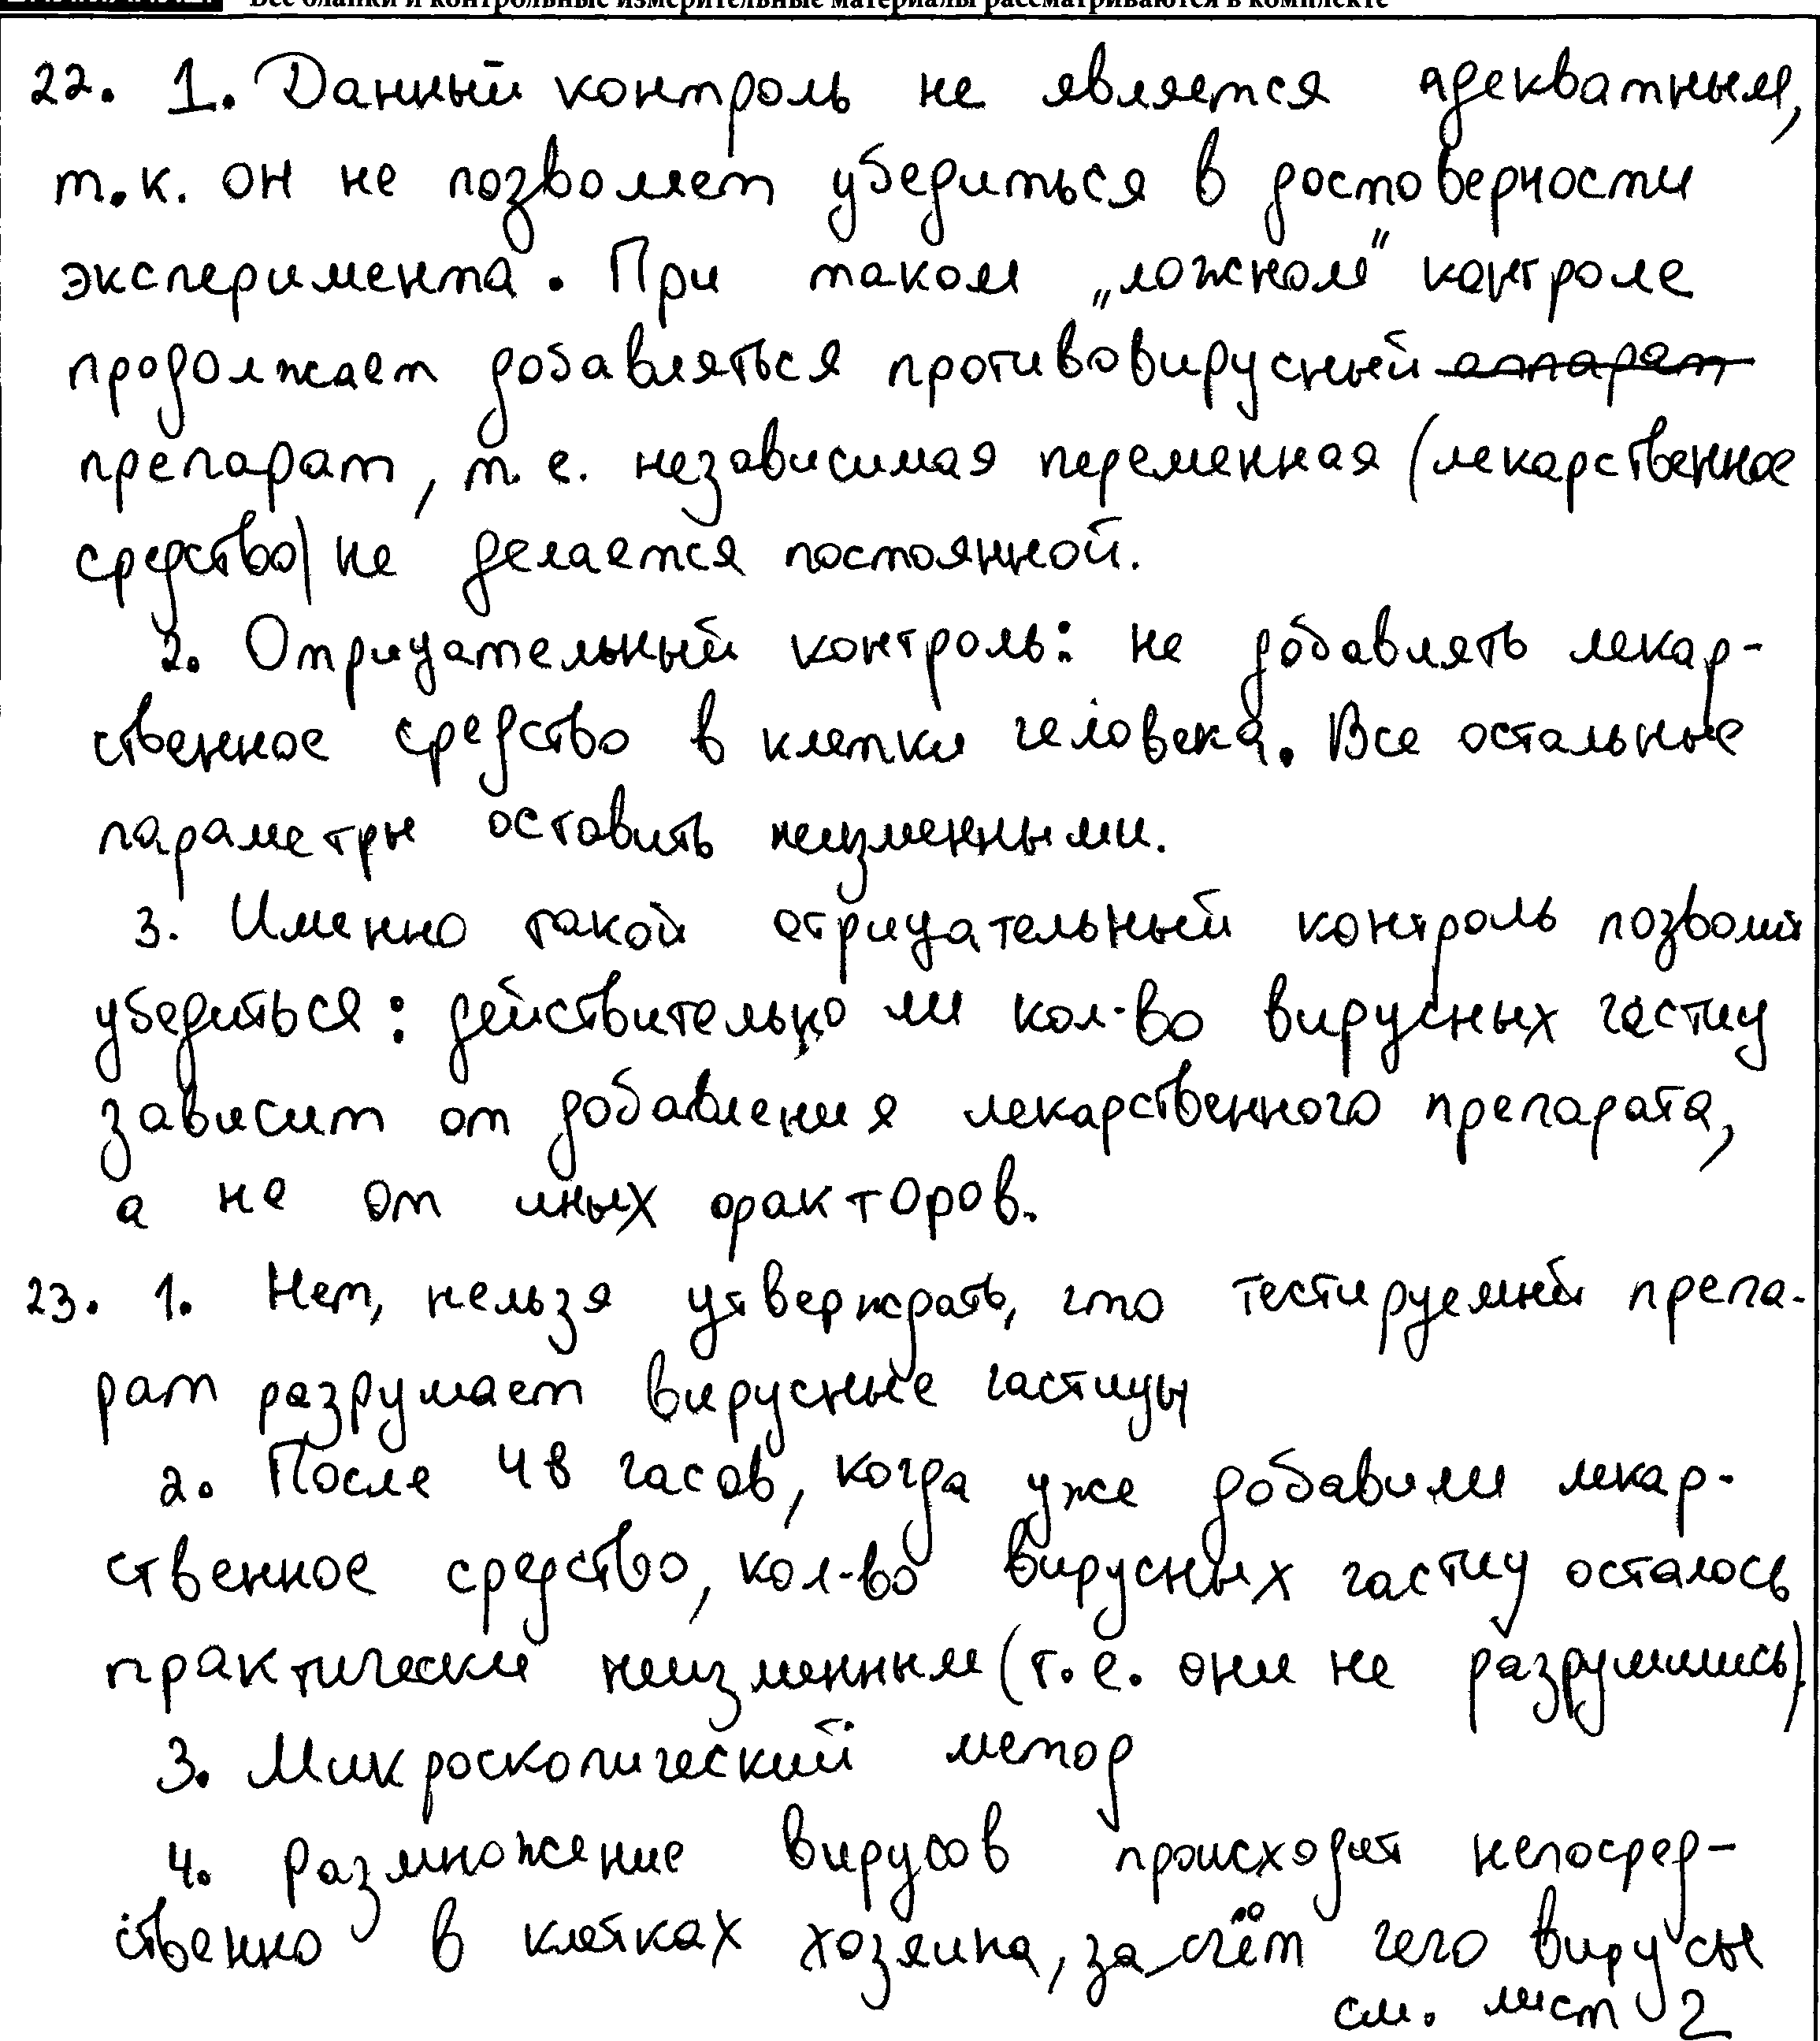 Все бланки и контрольные измерительные материалы рассматриваются в комплекте
22. 1. Данный контроль не является адекватным,
т.к. он не позволяет убедиться в достоверности
эксперимента. При таком „ложном" контроле
продолжает добавляться противовирусный аппарат
препарат, т.е. независимая переменная (лекарственное
средство) не делается постоянной.
2. Отрицательный контроль: не добавлять лекар-
ственное средство в клетки человека. Все остальные
параметры оставить неизменными.
3. Именно такой отрицательный контроль позволит
убедиться: действительно ли кол-во вирусных частиц
зависит от добавления лекарственного препарата,
а не от иных факторов.
23. 1. Нет, нельзя утверждать, что тестируемый препа-
рат разрушает вирусные частицы
2. После 48 часов, когда уже добавили лекар-
ственное средство, кол-во вирусных частиц осталось
практически неизменным (т.е. они не разрушились).
3. Микроскопический метод
4. Размножение вирусов происходит непосред-
ственно в клетках хозяина, за счёт чего вирусы
см. лист 2